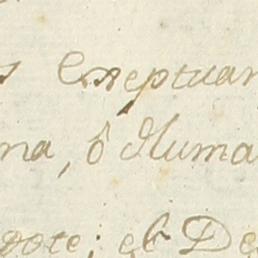 s Exeptuan
na, ô Huma
gote; el De